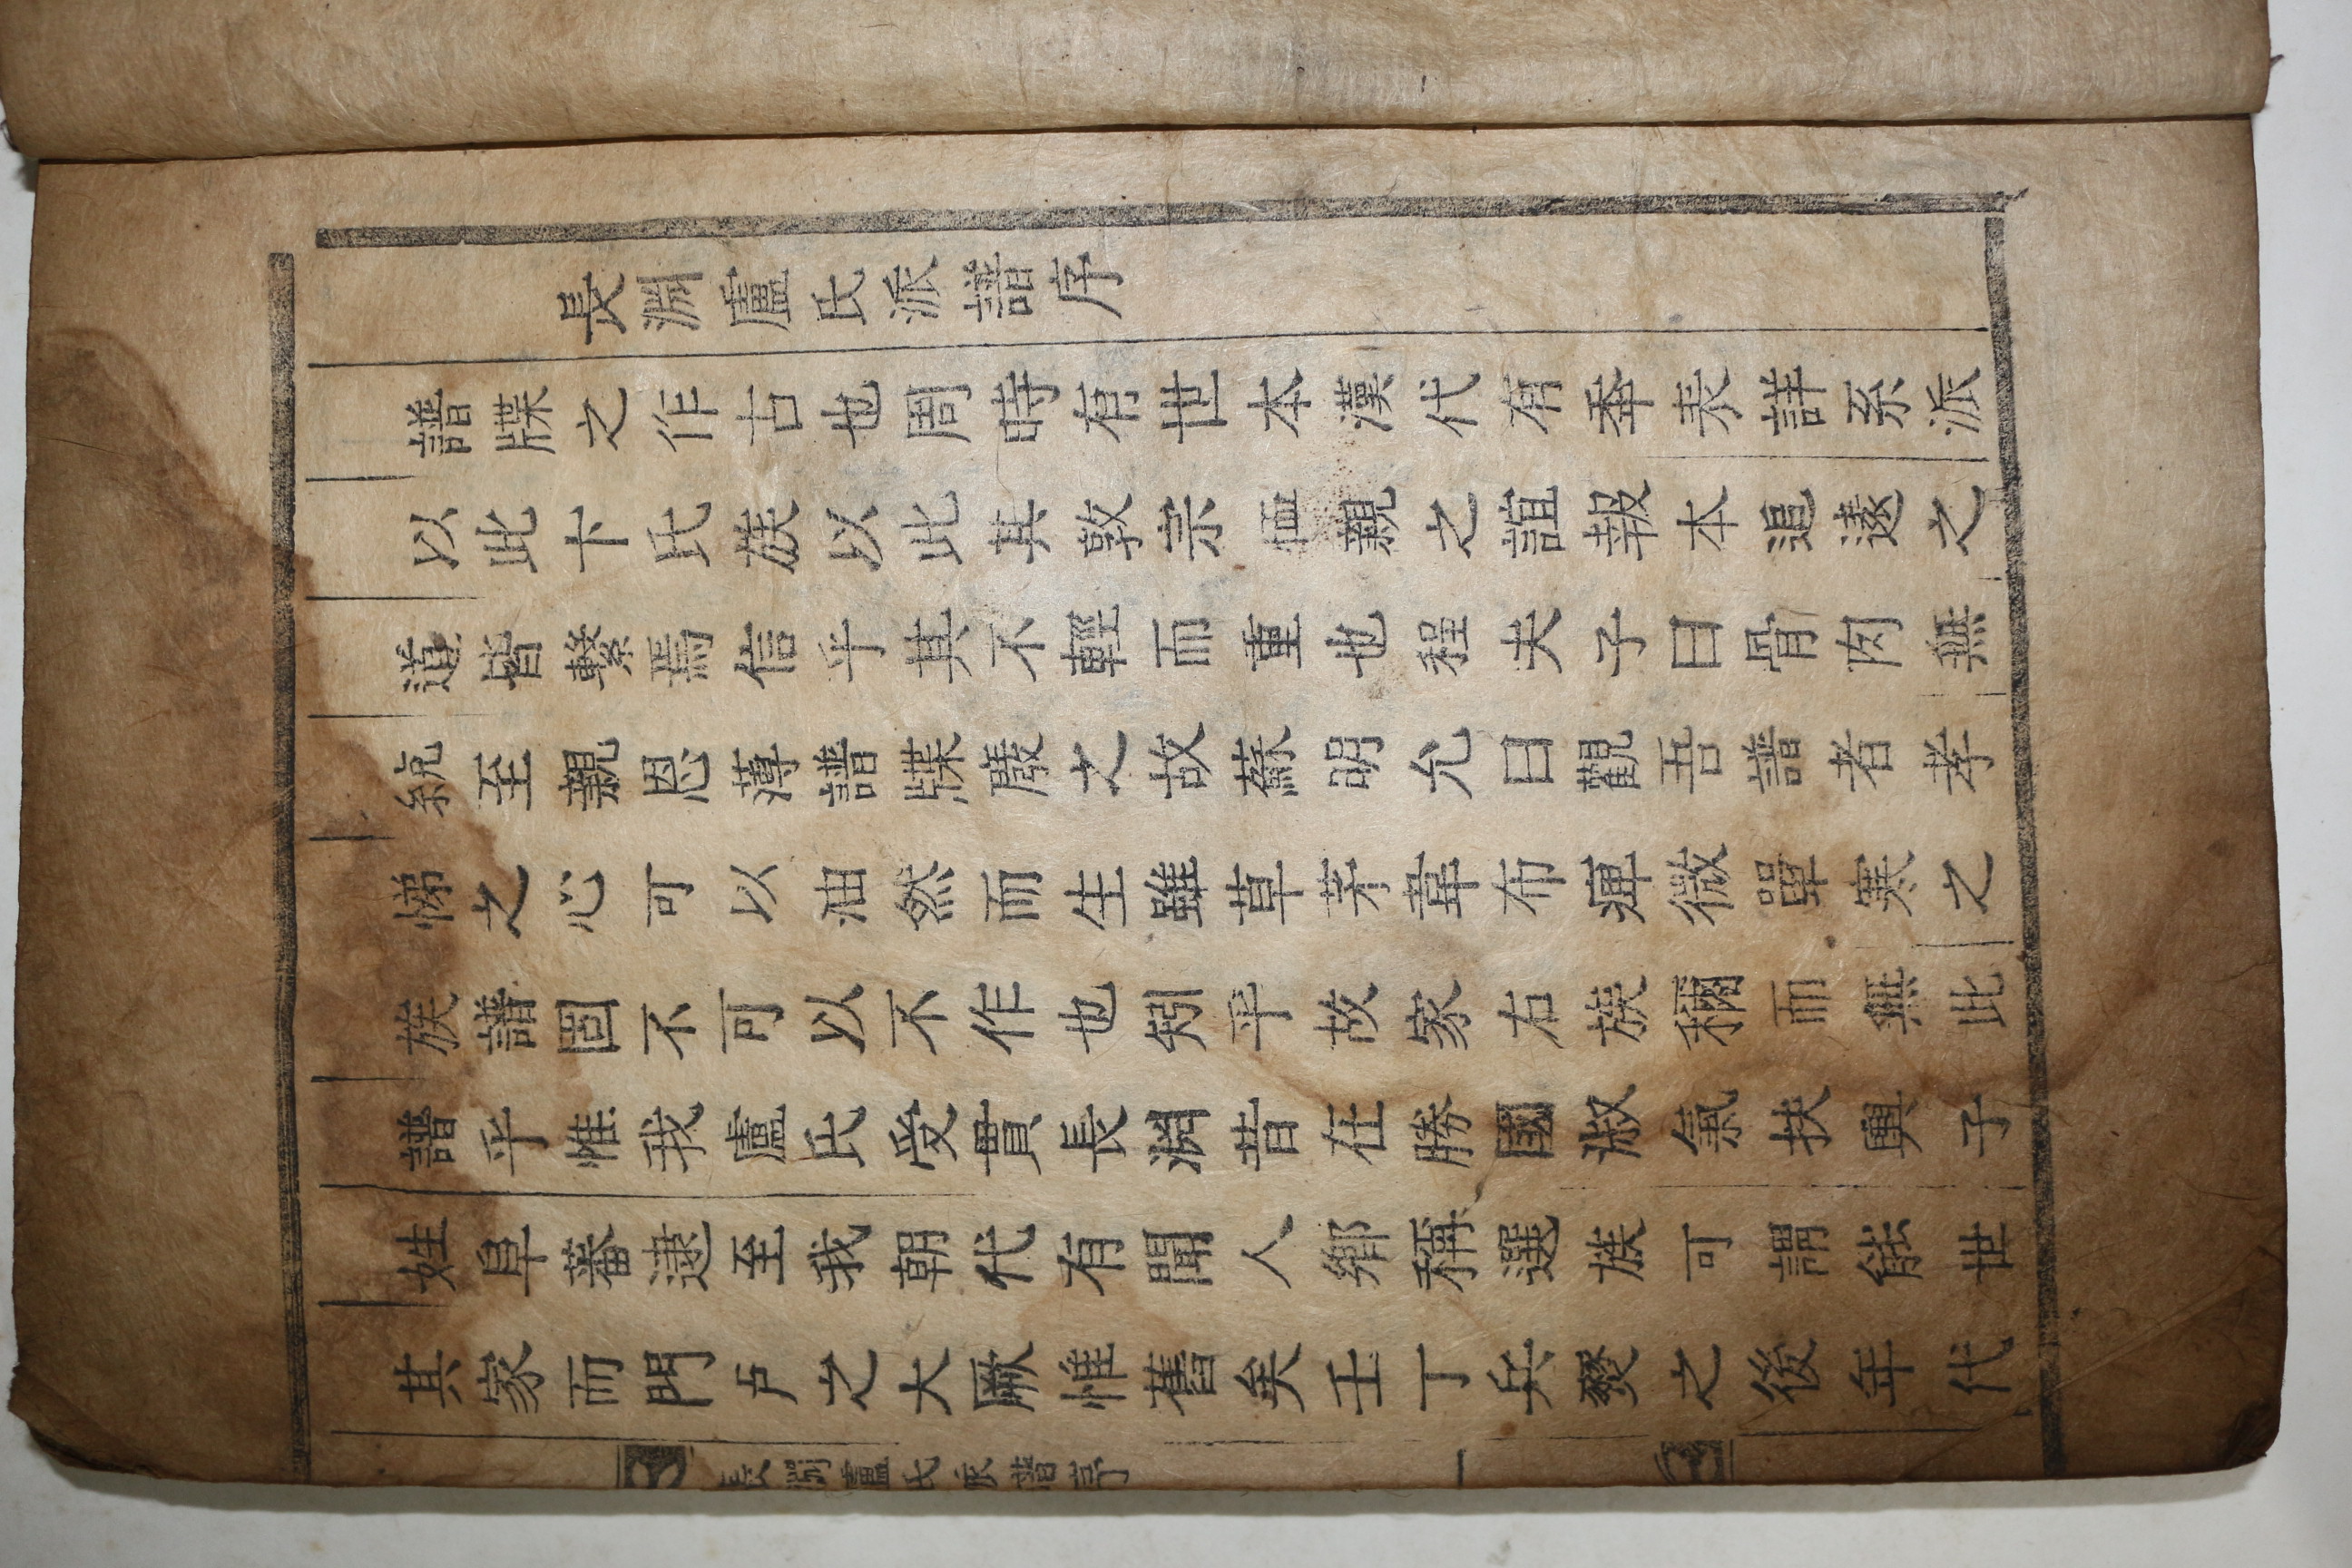 長淵盧氏派譜序
譜牒之作古也周時有世本漢代有秊表詳系派
以此卞氏族以此其敦宗恤親之誼報本追遠之
道皆繫焉信乎其不輕而重也程夫子曰骨肉無
統至親恩薄譜牒廢之故蘇明允曰觀吾譜者孝
悌之心可以油然而生雖草茅韋布痺微單寒之
族譜固不可以不作也矧乎故家右族稱而無此
譜乎惟我盧氏受貫長淵昔在勝國淑氣扶輿子
姓阜蕃逮至我朝代有聞人鄉稱選族可謂能世
其家而門戶之大厥惟舊矣壬丁兵燹之後年代
長淵盧氏派譜序 一